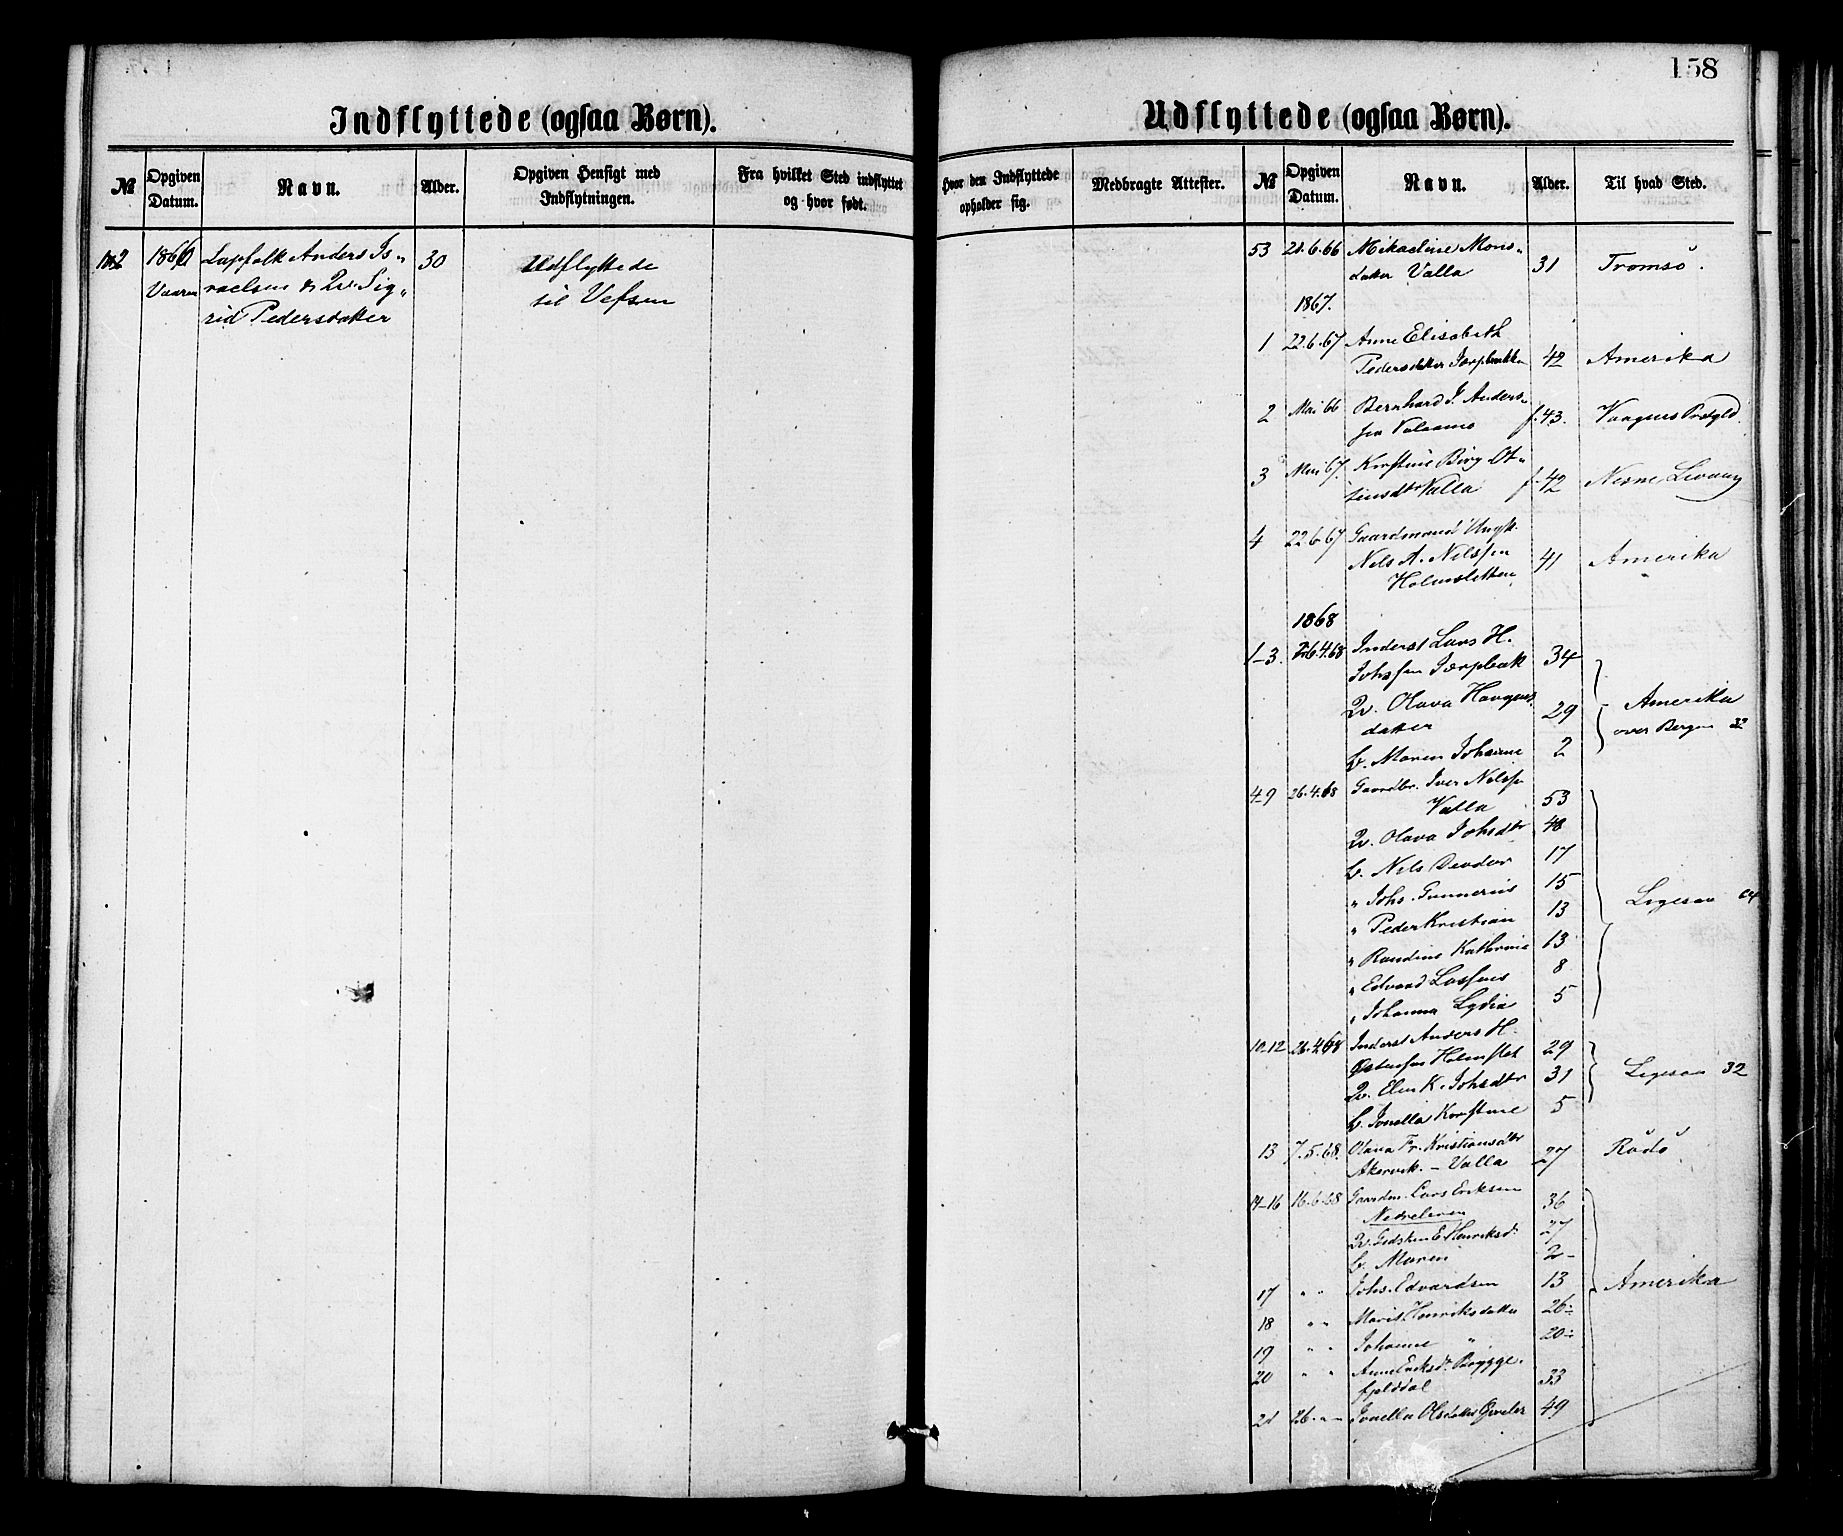 158
Indflyttede (ogsaa Børn).
№ Opgiven Datum. Navn. Alder. Opgiven Hensigt med Indflytningen. Fra hvilket Sted indflyttet og hvor født.
1866 Lapfolk Anders Is- 30 Udflyttede
Vaaren raelsen & Qv. Sig- til Vefsen
rid Pedersdatter
Udflyttede (ogsaa Børn).
Hvor den Indflyttede opholder sig. Medbragte Attester. № Opgiven Datum. Navn. Alder. Til hvad Sted.
53 21.6.66 Mikaeline Mons-
datter Valla 31 Tromsö.
1867.
1 22.6.67 Anne Elisabeth
Pedersdatter 42 Amerika
2 Mai 66 Bernhard J. Anders-
sen f. 43. Vaagens Prstgld.
3 Mai 67. Kirstine Birg. Ot-
tinsdtr Valla f. 42
4 22.6.67 Gaardmand Ungk.
Nils A. Nilssen 41 Amerika
Holmsletten
1868
1-3. 26.4.68 Inderst Lars H.
Johssen 34
Qv. Olava Haagens-
datter 29 Amerika
over Bergen 32
B. Maren Johanne 2
4-9 26.4.68 Gaardbr. Iver Nilssen
Valla 53
Qv. Olava Johsdtr 48
B. Nils Deodor 17
" Johs. Gunnerius 15 Ligesaa 64
" Peder Kristian 13
" Randine Kathrine 13
" Edvard 8
" Johanna Lydia 5
10-12 26.4.68 Inderst Anders H.
Østensen Holmslet 29
Qv. Elen K. Johsdtr 31 Ligesaa 32
B. Ivnella Kirstine 5
13 7.5.68. Olava Fr. Kristiansdtr
Akervik. - Valla 27 Rødø
14-16 16.6.68 Gaardm. Lars Eriksen 36
Nedreleren
Qv. E. Henriksd. 27
B. Maren 2-
17 " " Johs. Edvardsen 13 Amerika
18 " " Marit Henriksdatter 26-
19 " " Johanne " 20-
20 " " Anne Eriksdr. Brygge-
fjelddal 33
21 26. " - Ivnella Olsdatter 49